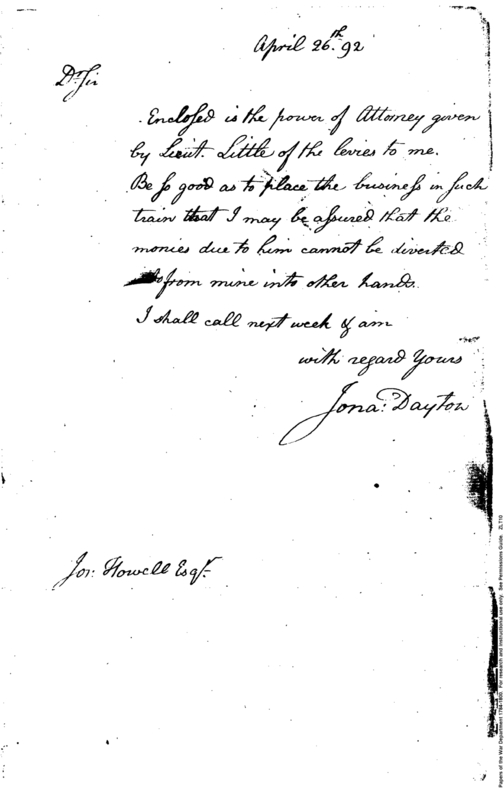 April 26.th 92
Dr Sir
Enclosed is the power of Attorney given
by Lieut. Little of the levies to me.
Be so good as to place the business in such
train that I may be assured that the
monies due to him cannot be diverted
from mine into other hands.
I shall call next week & am
with regard Yours
Jona: Dayton
Jos: Howell Esqr.
Papers of the War Department 1784-1800. For research and instructional use only. See Permissions Guide. ZLT10